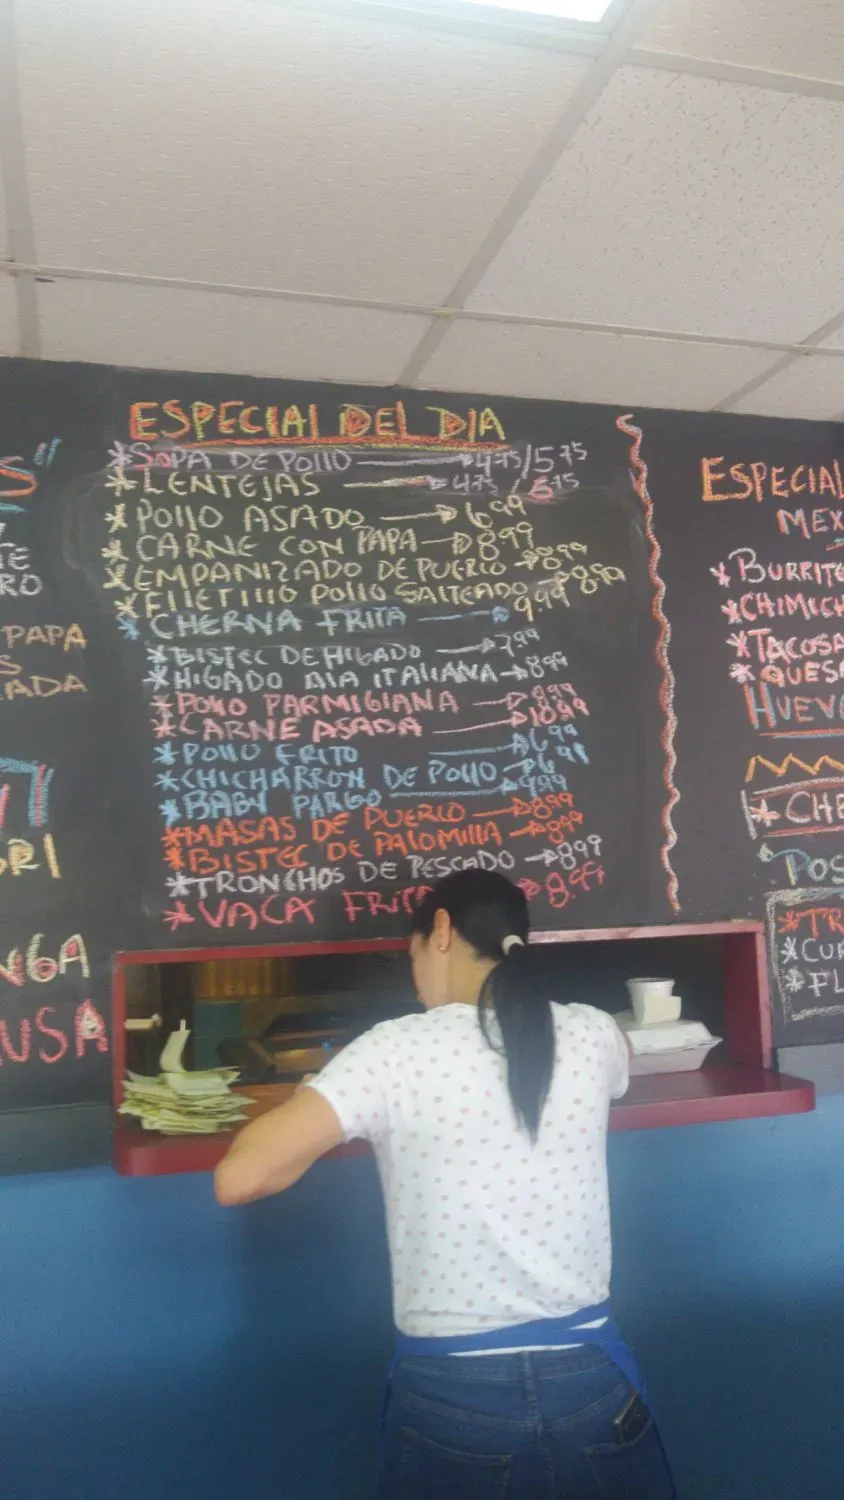 S"
TE
RO
PAPA
S
ADA
ORI
NGA
USA
ESPECIAL DEL DIA
*SOPA DE POllO 4.75/5.75
*LENTEJAS 4.75/5.75
*POllO ASADO 6.99
*CARNE CON PAPA 8.99
*EMPANIZADO DE PUERCO 8.99
*FIlETIllO POllO SALTEADO 8.99
*CHERNA FRITA 9.99
*BISTEC DE HIGADO 7.99
*HIGADO AlA ITALIANA 8.99
*POllO PARMIGIANA 8.99
*CARNE ASADA 10.99
*POllO FRITO 6.99
*CHICHARRON DE POllO 6.99
*BABY PARGO 9.99
*MASAS DE PUERCO 8.99
*BISTEC DE PALOMILLA 8.99
*TRONCHOS DE PESCADO 8.99
*VACA FRITA 8.99
ESPECIAL
MEX
*BURRITO
*CHIMICH
*TACOSA
*QUESA
HUEVO
*CHE
POS
*TR
*CU
*FL